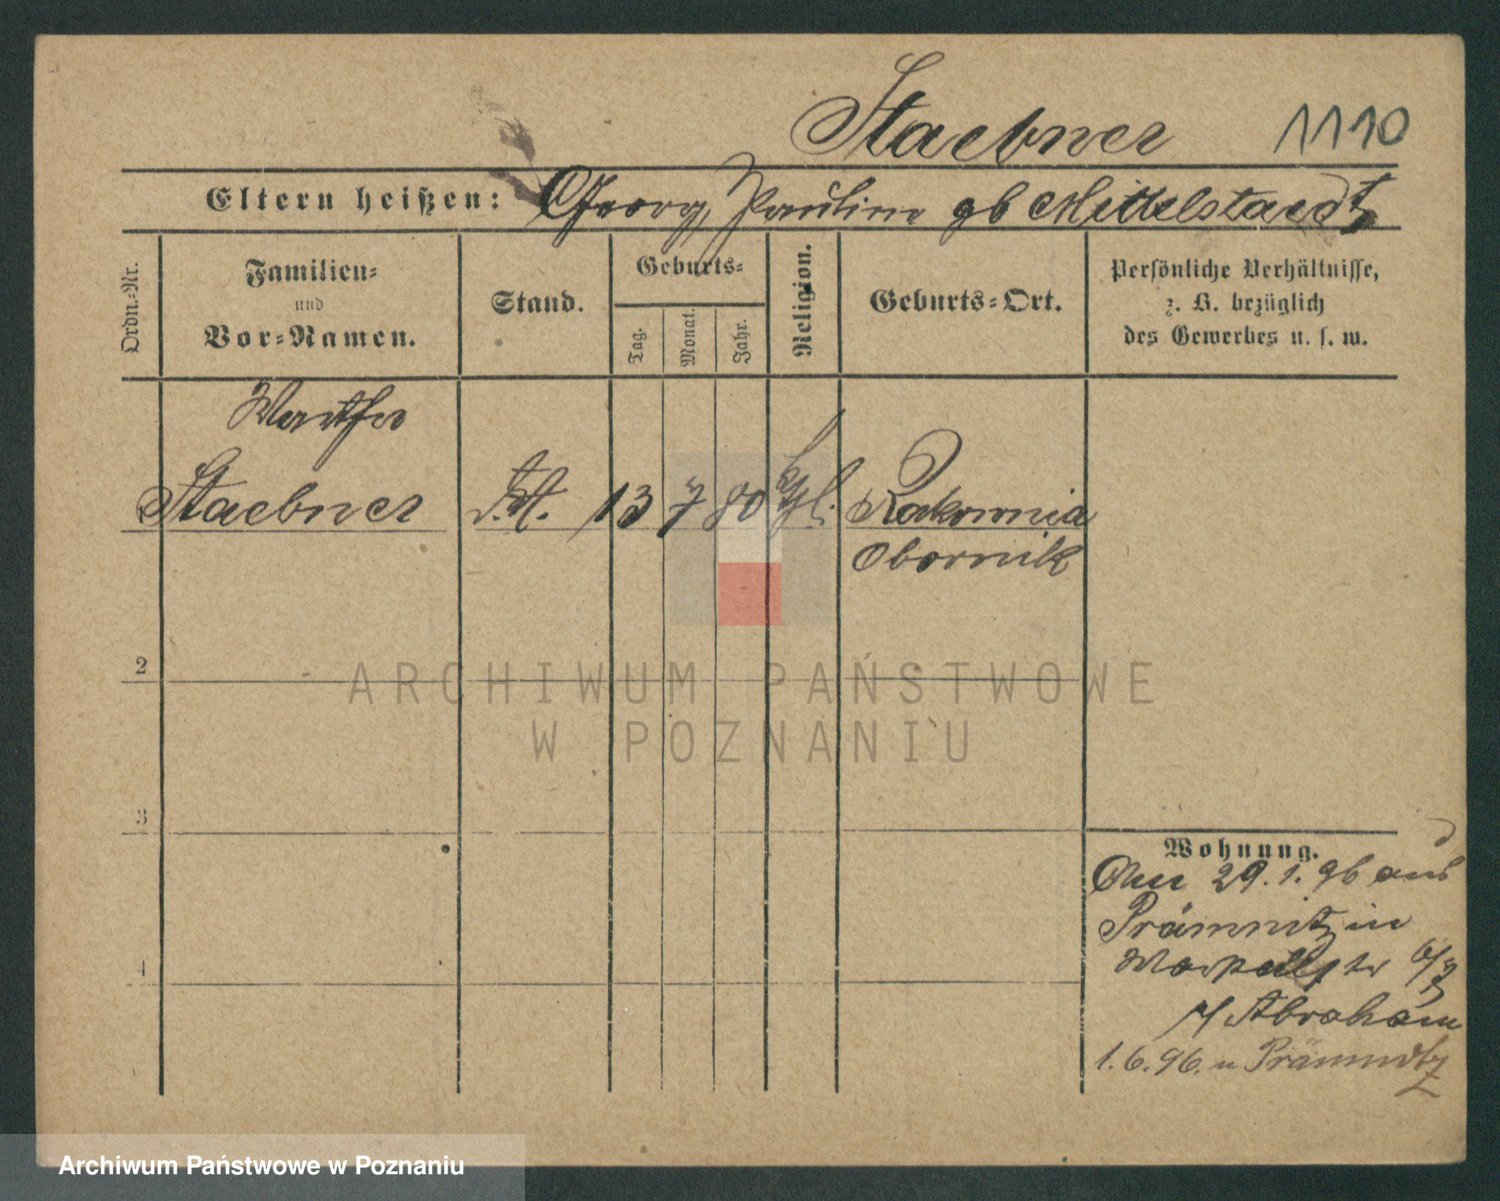 Staebner 1110
Eltern heißen: Georg, Pauline gb Mittelstaedt
Ordn.-Nr.
Familien-
und
Vor-Namen.
Stand.
Geburts-
Tag.
Monat.
Jahr.
Religion.
Geburts-Ort.
Persönliche Verhältnisse,
z. B. bezüglich
des Gewerbes u. s. w.
Martha
Staebner 13 7 80 Rakownia
Obornik
2
3
4
Wohnung.
29.1.96 aus
Prämnitz in
6/7
Abraham
1.6.96. n Prämnitz
ARCHIWUM PAŃSTWOWE
W POZNANIU
Archiwum Państwowe w Poznaniu